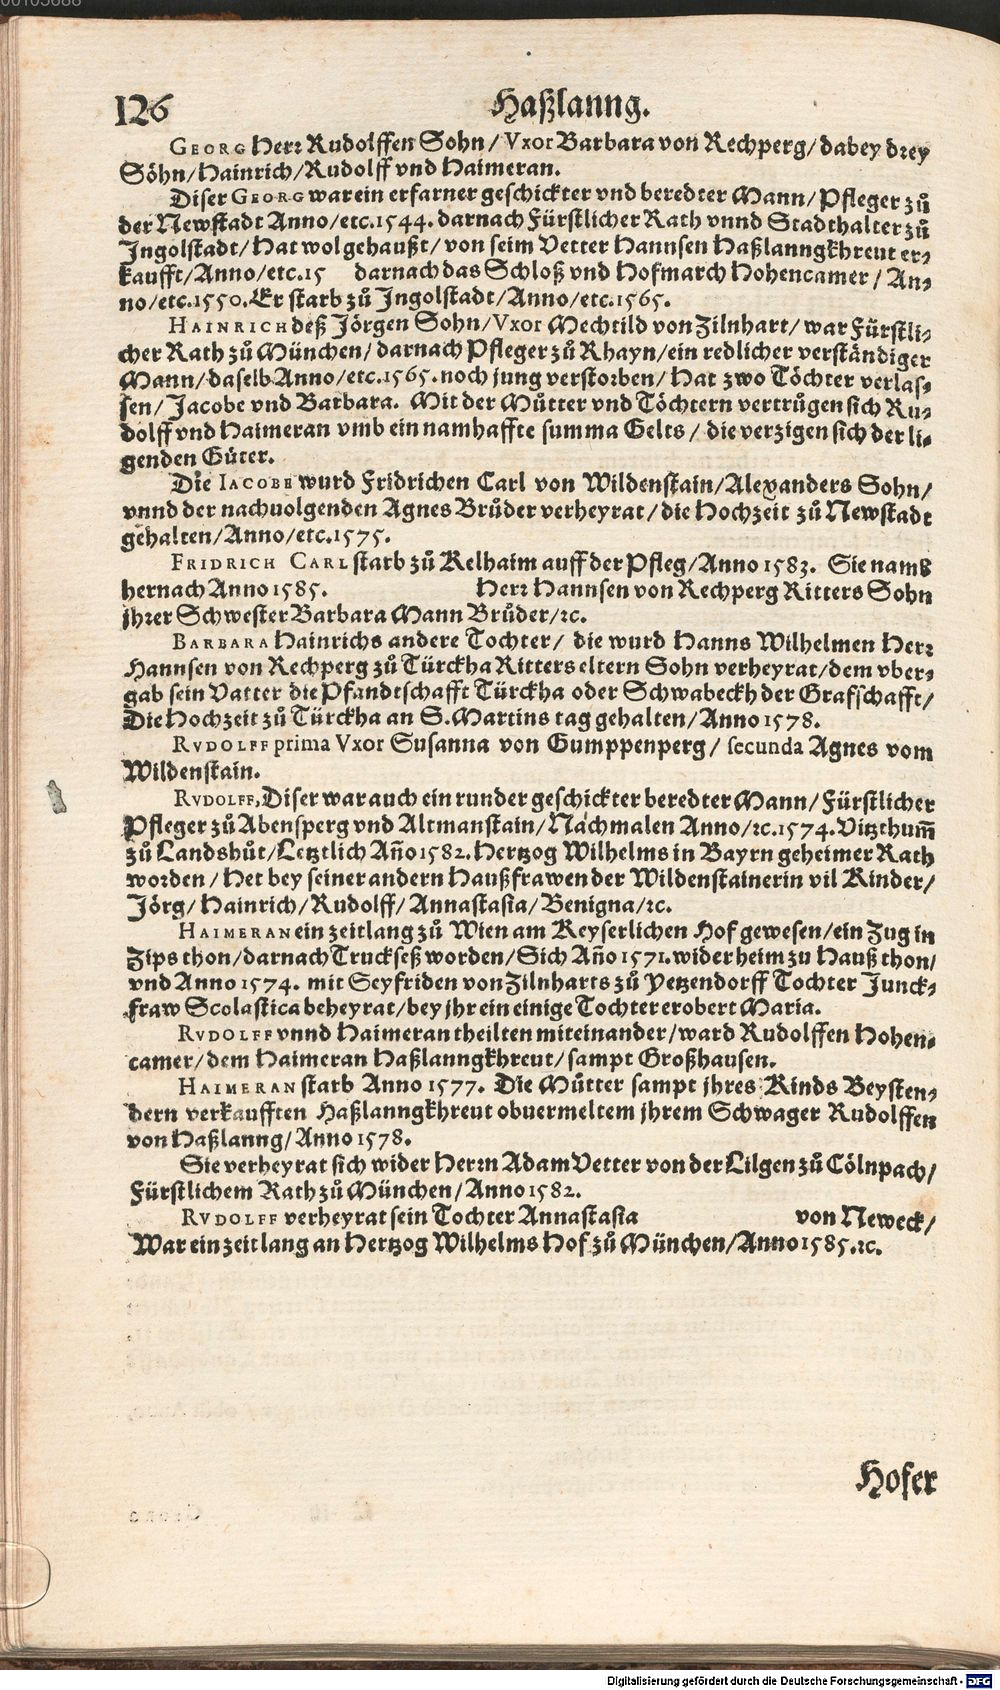 126
Haßlanng.
GEORG Herr Rudolffen Sohn / Vxor Barbara von Rechperg / dabey drey
Söhn / Hainrich / Rudolff vnd Haimeran.
Diser GEORG war ein erfarner geschickter vnd beredter Mann / Pfleger zů
der Newstadt Anno / etc. 1544. darnach Fürstlicher Rath vnnd Stadthalter zů
Ingolstadt / Hat wol gehaußt / von seim Vetter Hannsen Haßlanngkhreut er-
kaufft / Anno / etc. 15 darnach das Schloß vnd Hofmarch Hohencamer / An-
no / etc. 1550. Er starb zů Ingolstadt / Anno / etc. 1565.
HAINRICH deß Jörgen Sohn / Vxor Mechtild von Zilnhart / war Fürstli-
cher Rath zů München / darnach Pfleger zů Rhayn / ein redlicher verständiger
Mann / daselb Anno / etc. 1565. noch jung verstorben / Hat zwo Töchter verlas-
sen / Jacobe vnd Barbara. Mit der Můtter vnd Töchtern vertrůgen sich Ru-
dolff vnd Haimeran vmb ein namhaffte summa Gelts / die verzigen sich der li-
genden Güter.
Die IACOBE wurd Fridrichen Carl von Wildenstain / Alexanders Sohn /
vnnd der nachuolgenden Agnes Brůder verheyrat / die Hochzeit zů Newstadt
gehalten / Anno / etc. 1575.
FRIDRICH CARL starb zů Kelhaim auff der Pfleg / Anno 1583. Sie nam
hernach Anno 1585. Herr Hannsen von Rechperg Ritters Sohn
jhrer Schwester Barbara Mann Brůder / ꝛc.
BARBARA Hainrichs andere Tochter / die wurd Hanns Wilhelmen Herr
Hannsen von Rechperg zů Türckha Ritters eltern Sohn verheyrat / dem vber-
gab sein Vatter die Pfandtschafft Türckha oder Schwabeckh der Grafschafft /
Die Hochzeit zů Türckha an S. Martins tag gehalten / Anno 1578.
RVDOLFF prima Vxor Susanna von Gumppenperg / secunda Agnes vom
Wildenstain.
RVDOLFF, Diser war auch ein runder geschickter beredter Mann / Fürstlicher
Pfleger zů Abensperg vnd Altmanstain / Nachmalen Anno / ꝛc. 1574. Vitzthum̃
zů Landshůt / Letztlich Año 1582. Hertzog Wilhelms in Bayrn geheimer Rath
worden / Het bey seiner andern Haußfrawen der Wildenstainerin vil Kinder /
Jörg / Hainrich / Rudolff / Annastasia / Benigna / ꝛc.
HAIMERAN ein zeitlang zů Wien am Keyserlichen Hof gewesen / ein Zug in
Zips thon / darnach Truckseß worden / Sich Año 1571. wider heim zu Hauß thon /
vnd Anno 1574. mit Seyfriden von Zilnharts zů Yetzendorff Tochter Junck-
fraw Scolastica beheyrat / bey jhr ein einige Tochter erobert Maria.
RVDOLFF vnnd Haimeran theilten miteinander / ward Rudolffen Hohen-
camer / dem Haimeran Haßlanngkhreut / sampt Großhausen.
HAIMERAN starb Anno 1577. Die Můtter sampt jhres Kinds Beysten-
dern verkaufften Haßlanngkhreut obuermeltem jhrem Schwager Rudolffen
von Haßlanng / Anno 1578.
Sie verheyrat sich wider Herrn Adam Vetter von der Lilgen zů Cölnpach /
Fürstlichem Rath zů München / Anno 1582.
RVDOLFF verheyrat sein Tochter Annastasia von Neweck /
War ein zeit lang an Hertzog Wilhelms Hof zů München / Anno 1585. ꝛc.
Hofer
Digitalisierung gefördert durch die Deutsche Forschungsgemeinschaft - DFG